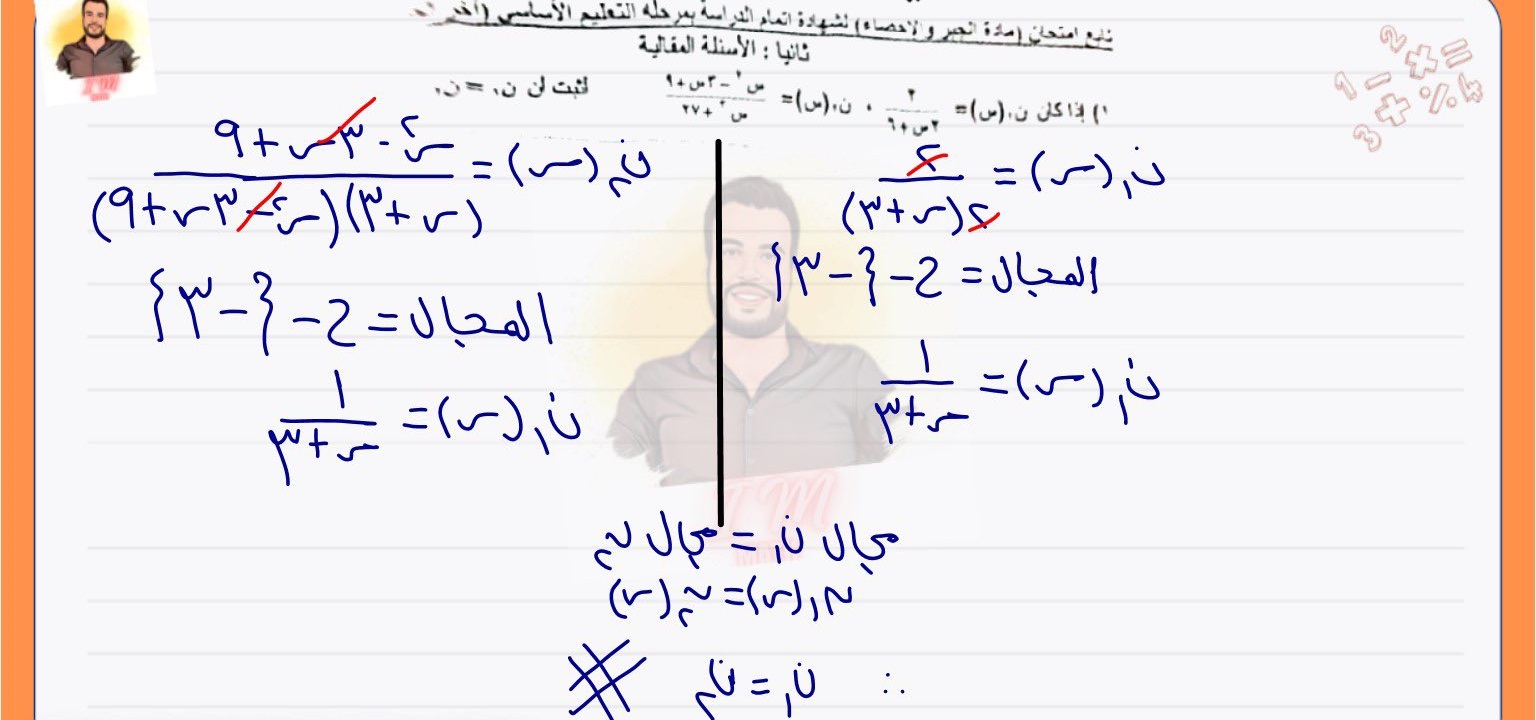 تابع امتحان (مادة الجبر والاحصاء) لشهادة اتمام الدراسة بمرحلة التعليم الأساسي
ثانيا : الأسئلة المقالية
١) إذا كان ن١(س) = ٢ / (٢س + ٦) ، ن٢(س) = (س٢ – ٣س + ٩) / (س٣ + ٢٧) اثبت أن ن١ = ن٢
ن١(س) = ٢ / ٢(س + ٣)
المجال = ح – {–٣}
ن١(س) = ١ / (س + ٣)
ن٢(س) = (س٢ – ٣س + ٩) / (س + ٣)(س٢ – ٣س + ٩)
المجال = ح – {–٣}
ن١(س) = ١ / (س + ٣)
مجال ن١ = مجال ن٢
ن١(س) = ن٢(س)
∴ ن١ = ن٢ #
TM
1 – 2 + = 3 + % 4